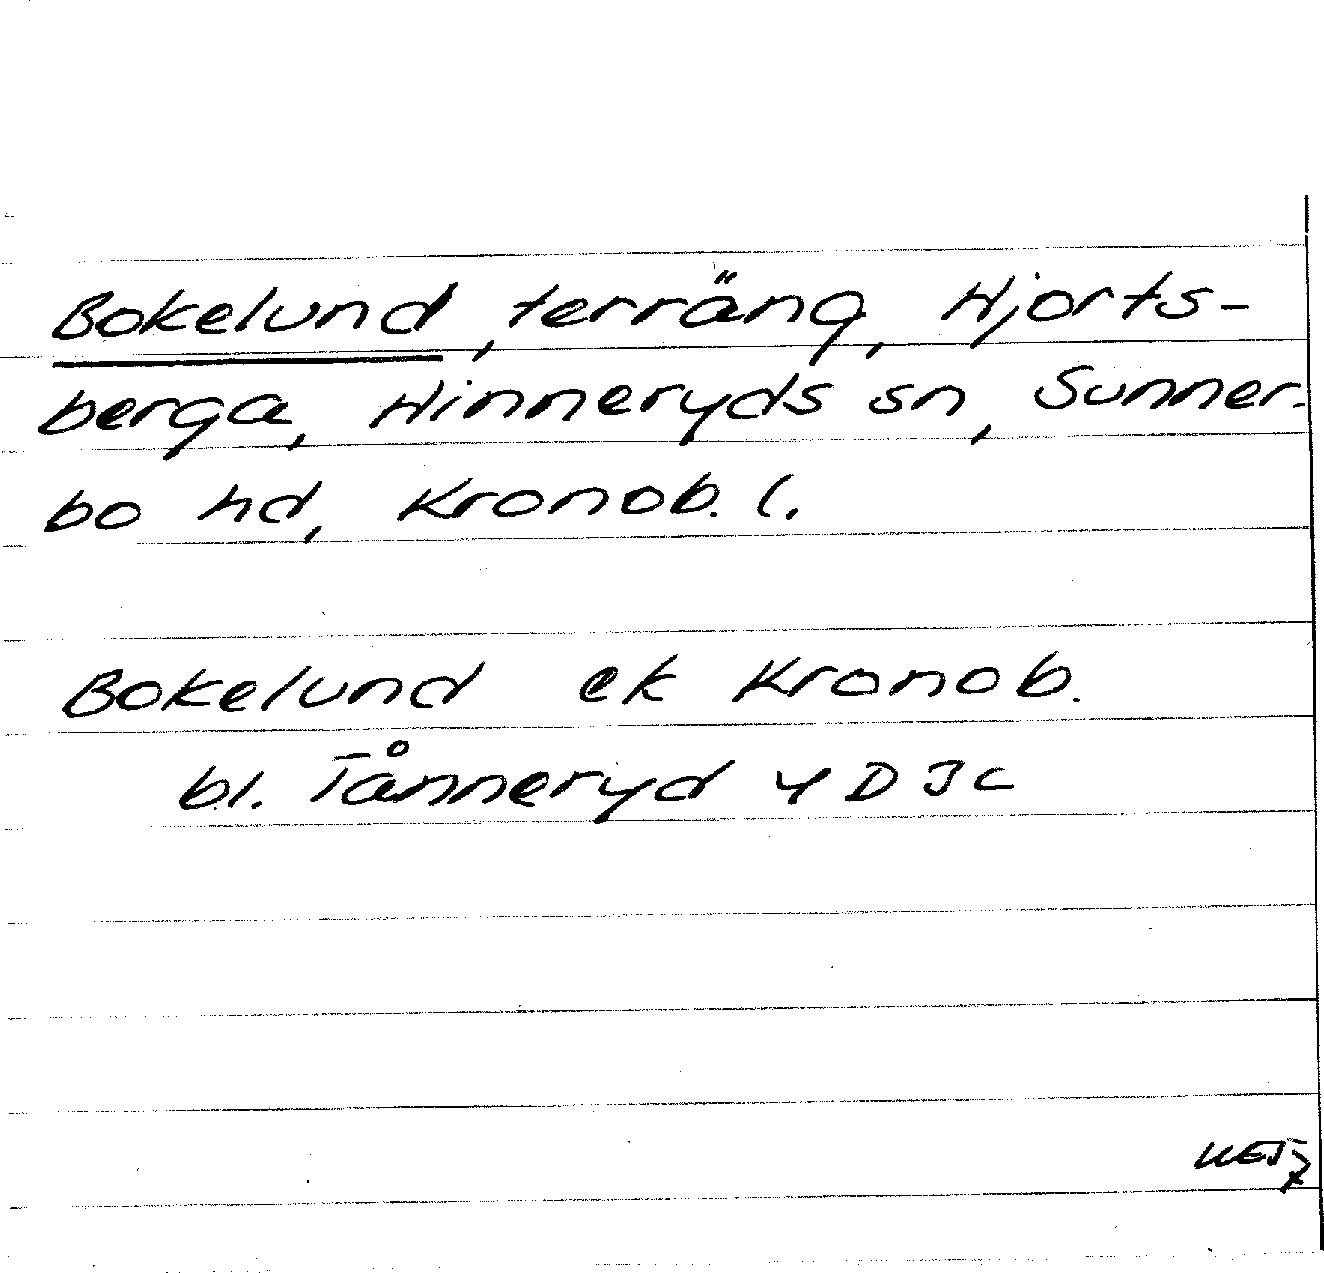 Bokelund, terräng, Hjorts-
berga, Hinneryds sn, Sunner-
bo hd, Kronob. l.
Bokelund ek Kronob.
bl. Tånneryd 4 D J c